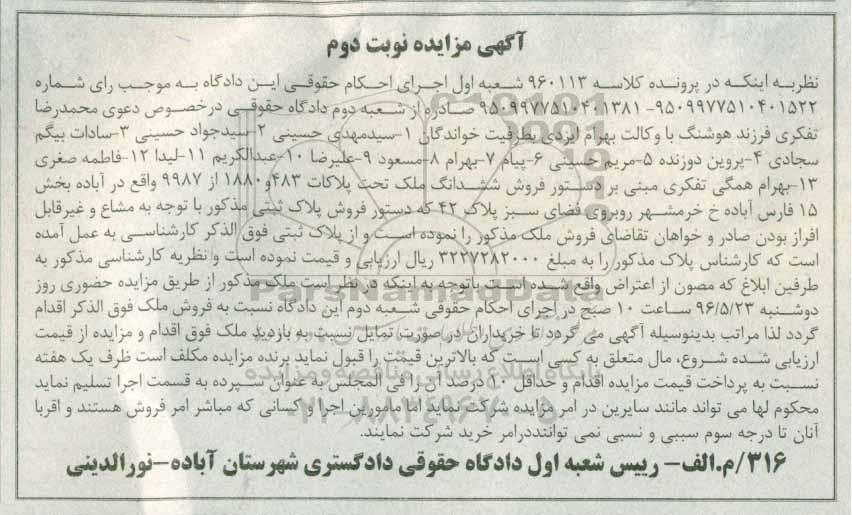 آگهی مزایده نوبت دوم
نظربه اینکه در پرونده کلاسه ۹۶۰۱۱۳ شعبه اول اجرای احکام حقوقی این دادگاه به موجب رای شماره
۹۵۰۹۹۷۷۵۱۰۴۰۱۵۲۲- ۹۵۰۹۹۷۷۵۱۰۴۰۱۳۸۱ صادره از شعبه دوم دادگاه حقوقی درخصوص دعوی محمدرضا
تفکری فرزند هوشنگ با وکالت بهرام ایزدی بطرفیت خواندگان ۱-سیدمهدی حسینی ۲-سیدجواد حسینی ۳-سادات بیگم
سجادی ۴-پروین دوزنده ۵-مریم حسینی ۶-پیام ۷-بهرام ۸-مسعود ۹-علیرضا ۱۰-عبدالکریم ۱۱-لیدا ۱۲-فاطمه صغری
۱۳-بهرام همگی تفکری مبنی بر دستور فروش ششدانگ ملک تحت پلاکات ۴۸۳و۱۸۸۰ از ۹۹۸۷ واقع در آباده بخش
۱۵ فارس آباده خ خرمشهر روبروی فضای سبز پلاک ۴۲ که دستور فروش پلاک ثبتی مذکور با توجه به مشاع و غیرقابل
افراز بودن صادر و خواهان تقاضای فروش ملک مذکور را نموده است و از پلاک ثبتی فوق الذکر کارشناسی به عمل آمده
است که کارشناس پلاک مذکور را به مبلغ ۳۲۲۷۲۸۲۰۰۰ ریال ارزیابی و قیمت نموده است و نظریه کارشناسی مذکور به
طرفین ابلاغ که مصون از اعتراض واقع شده است باتوجه به اینکه در نظر است ملک مذکور از طریق مزایده حضوری روز
دوشنبه ۹۶/۵/۲۳ ساعت ۱۰ صبح در اجرای احکام حقوقی شعبه دوم این دادگاه نسبت به فروش ملک فوق الذکر اقدام
گردد لذا مراتب بدینوسیله آگهی می گردد تا خریداران در صورت تمایل نسبت به بازدید ملک فوق اقدام و مزایده از قیمت
ارزیابی شده شروع، مال متعلق به کسی است که بالاترین قیمت را قبول نماید برنده مزایده مکلف است ظرف یک هفته
نسبت به پرداخت قیمت مزایده اقدام و حداقل ۱۰ درصد آن را فی المجلس به عنوان سپرده به قسمت اجرا تسلیم نماید
محکوم لها می تواند مانند سایرین در امر مزایده شرکت نماید اما مامورین اجرا و کسانی که مباشر امر فروش هستند و اقربا
آنان تا درجه سوم سببی و نسبی نمی تواننددرامر خرید شرکت نمایند.
۳۱۶/م.الف- رییس شعبه اول دادگاه حقوقی دادگستری شهرستان آباده-نورالدینی
ParsNamadData
پایگاه اطلاع رسانی مناقصه و مزایده
۰۲۱-۸۸۳۴۹۶۷۰-۵